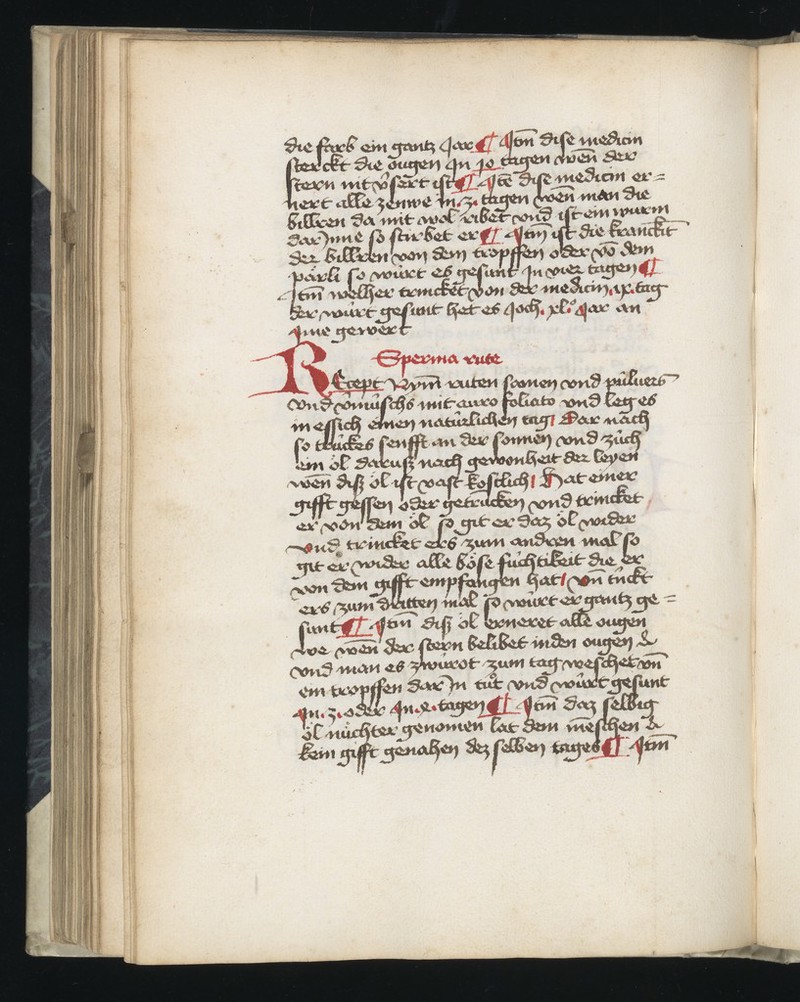 die farb ein gantz Jar ¶ Jtm̄ dise medicin
sterckt die ougen Jn jo tagen wen̄ der
stern nit v̓sert ist ¶ Jtē dise medicin er=
nert alle zenwe in .z. tagen wen̄ man die
billren da mit wol ribet vnd ist ein wurm
dar Jnne so stirbet er ¶ Jtm ist die kranckēit
der billren von dem tropffen oder vō dem
pärli so wúrt es gesunt Jn vier tagen ¶
Jtm̄ welher trincket von der medicin .ix. tag
der wúrt gesunt het es Joch .xl. Jar an
Jme gewert
Sperma rute
REcept Nym̄ ruten somen vnd púluers
vnd v̓múschs mit auro foliato vnd leg es
in essich einen natúrlichen tag Dar nach
so trúckes senfft an der sonnen vnd zúch
ein öl darusz nach gewonheit der leyen
wen̄ disz öl ist vast kostlich Hat einer
gifft gessen oder getrūcken vnd trincket
er von dem öl so git er daz öl wider
Vnd trincket ers zum andren mal so
git er wider alle böse fúchtikeit die er
von dem gifft empfangen hat vn̄ tückt
ers zum dritten mal so wúrt er gantz ge=
sunt ¶ Jtm̄ disz öl erneret alle ougen
we wen̄ der stern belibet inden ougen
vnd man es zwúrot zum tag weschet vn̄
ein tropffen dar Jn tůt vnd wúrt gesunt
Jn .z. oder Jn .x. tagen ¶ Jtm̄ daz selbig
öl núchter genomen lat dem mēschen
kein gifft genahen dez selben tages ¶ Jtm̄